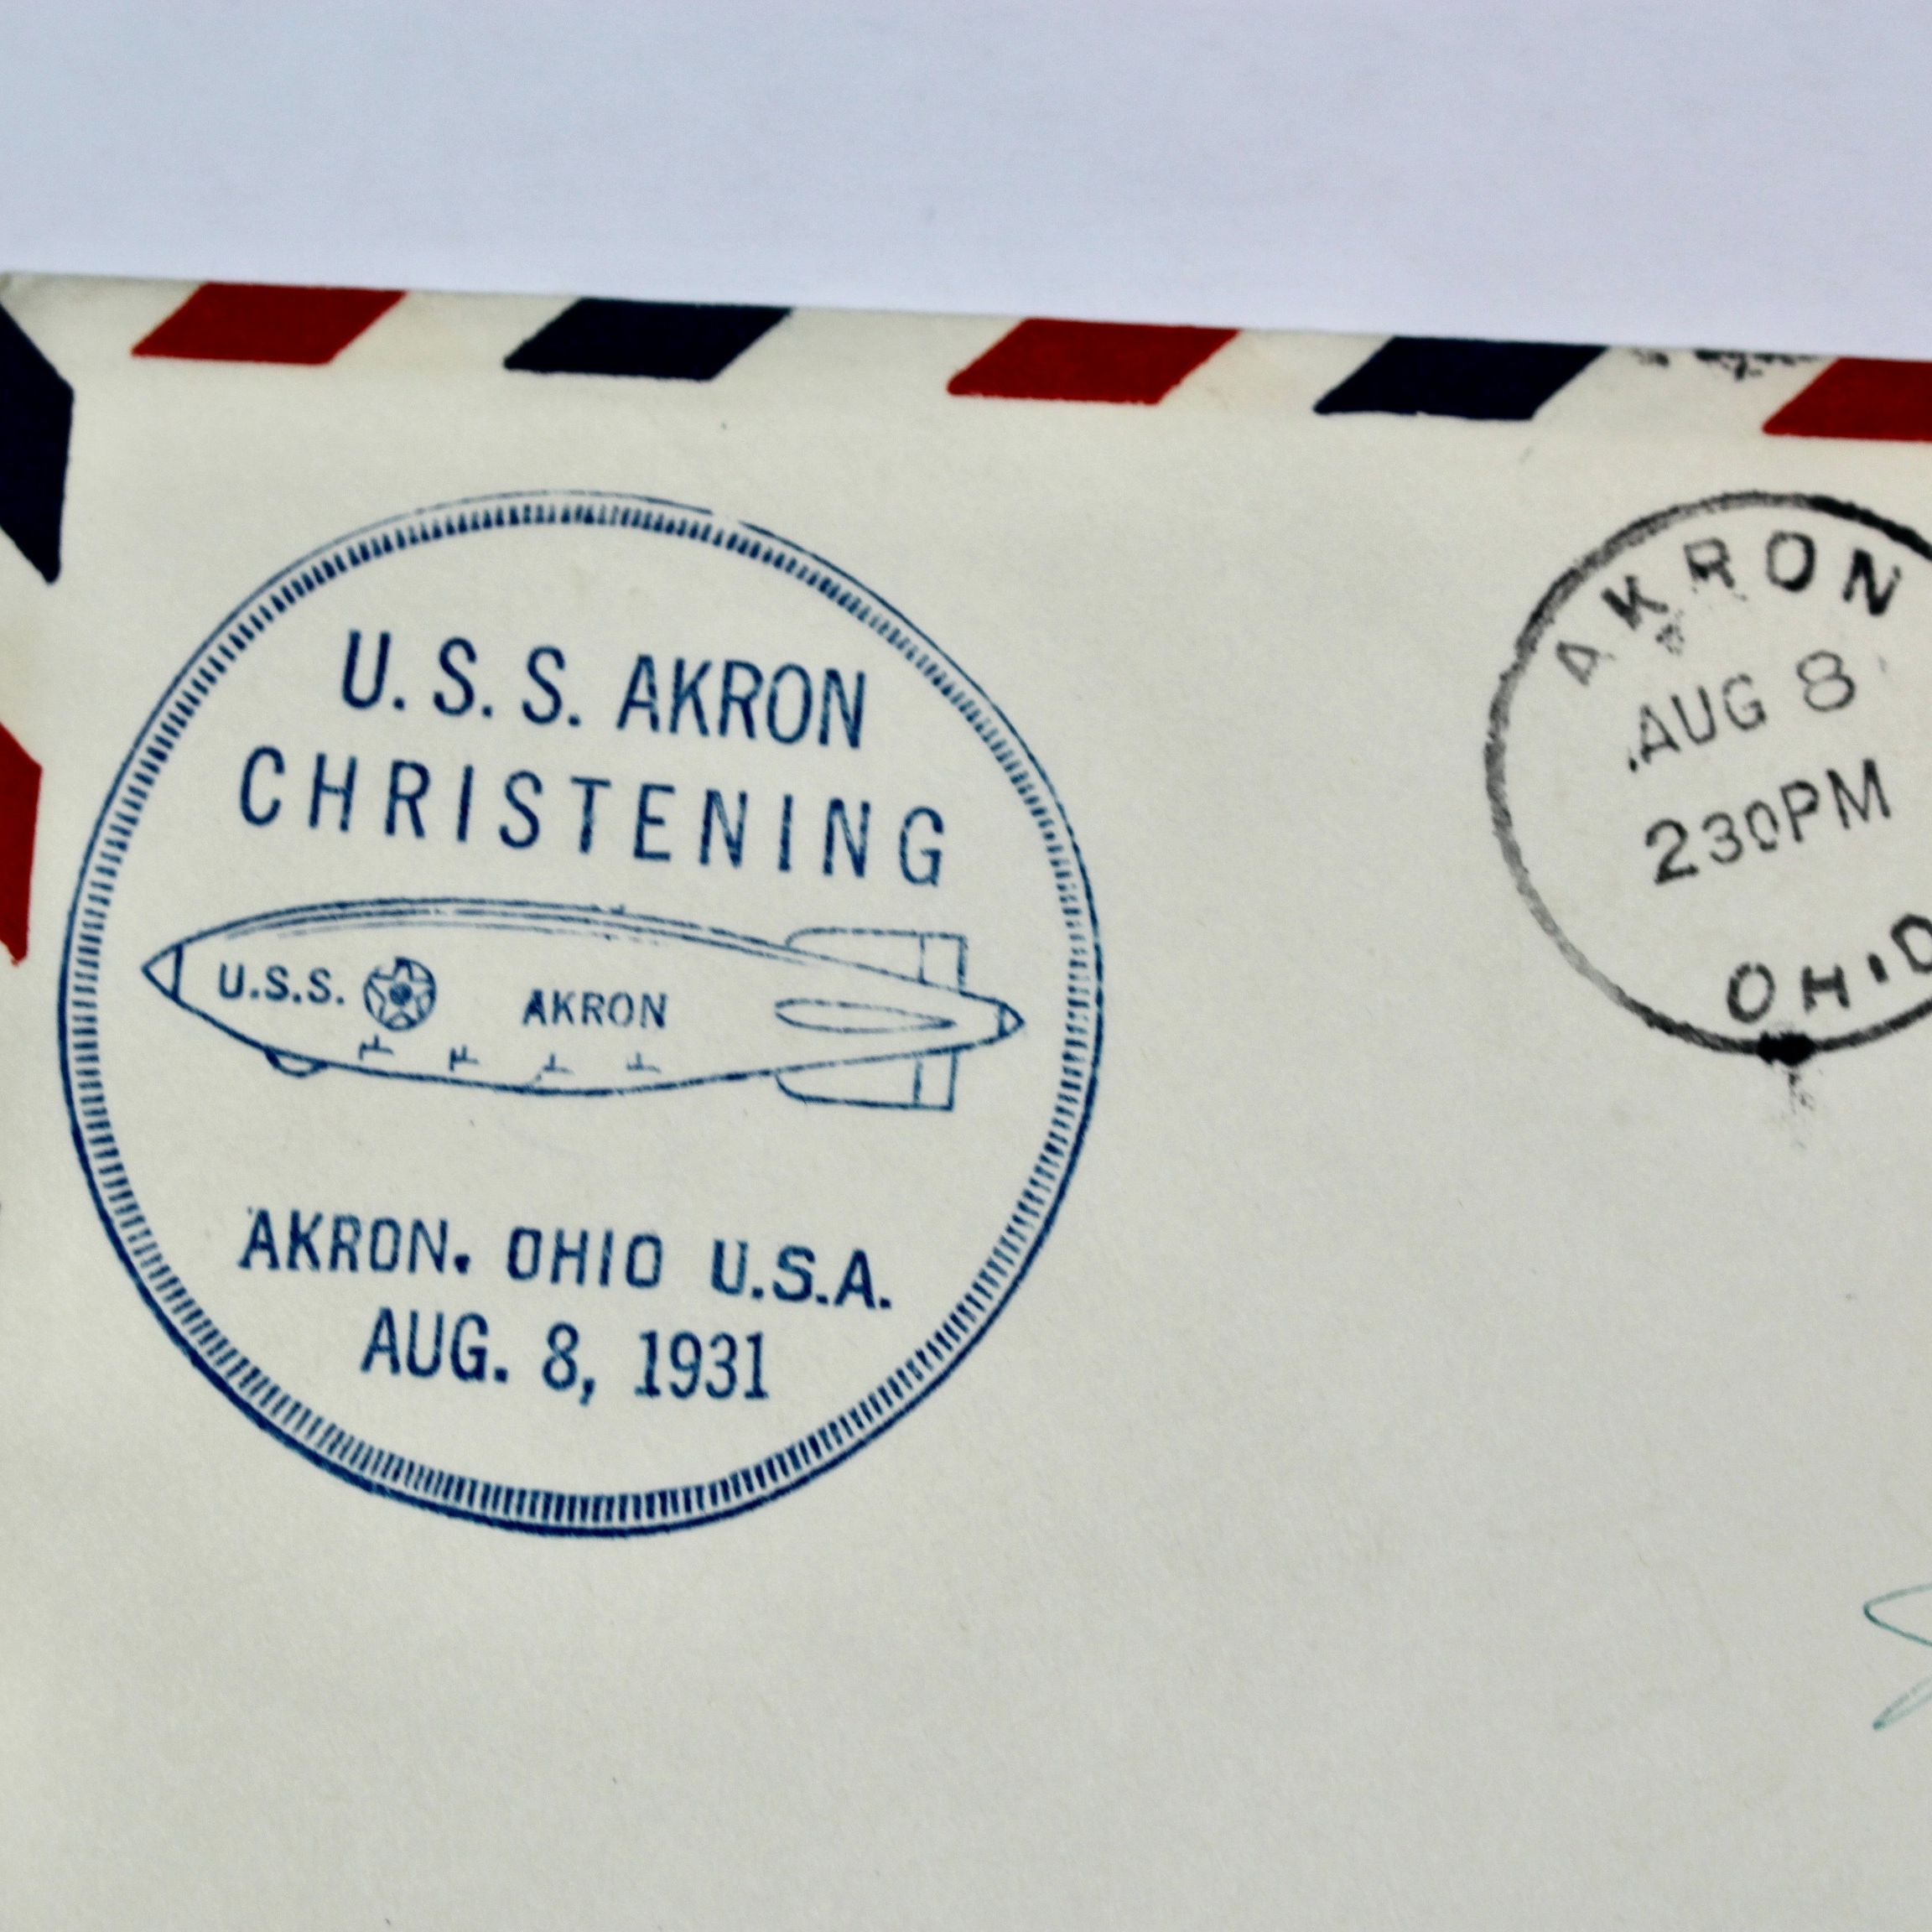 U.S.S. AKRON
CHRISTENING
U.S.S. AKRON
AKRON. OHIO U.S.A.
AUG. 8, 1931
AKRON
AUG 8
230PM
OHIO